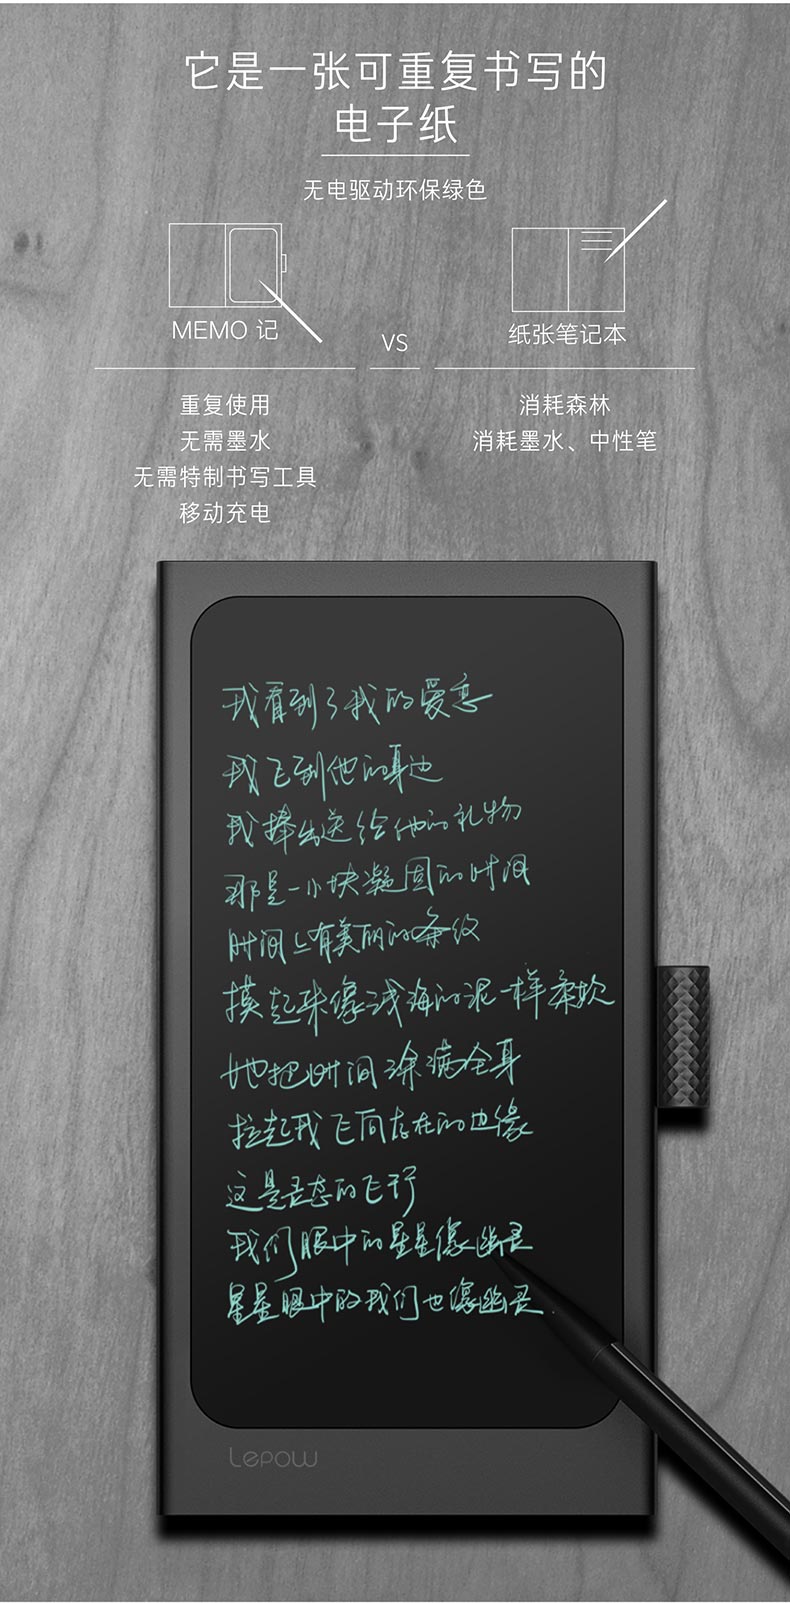 它是一张可重复书写的
电子纸
无电驱动环保绿色
MEMO 记
VS
纸张笔记本
重复使用
无需墨水
无需特制书写工具
移动充电
消耗森林
消耗墨水、中性笔
我看到了我的爱恋
我飞到他的身边
我捧出送给他的礼物
那是一小块凝固的时间
时间上有美丽的条纹
摸起来像浅海的泥一样柔软
她把时间涂满全身
拉起我飞向存在的边缘
这是灵态的飞行
我们眼中的星星像幽灵
星星眼中的我们也像幽灵.
Lepow